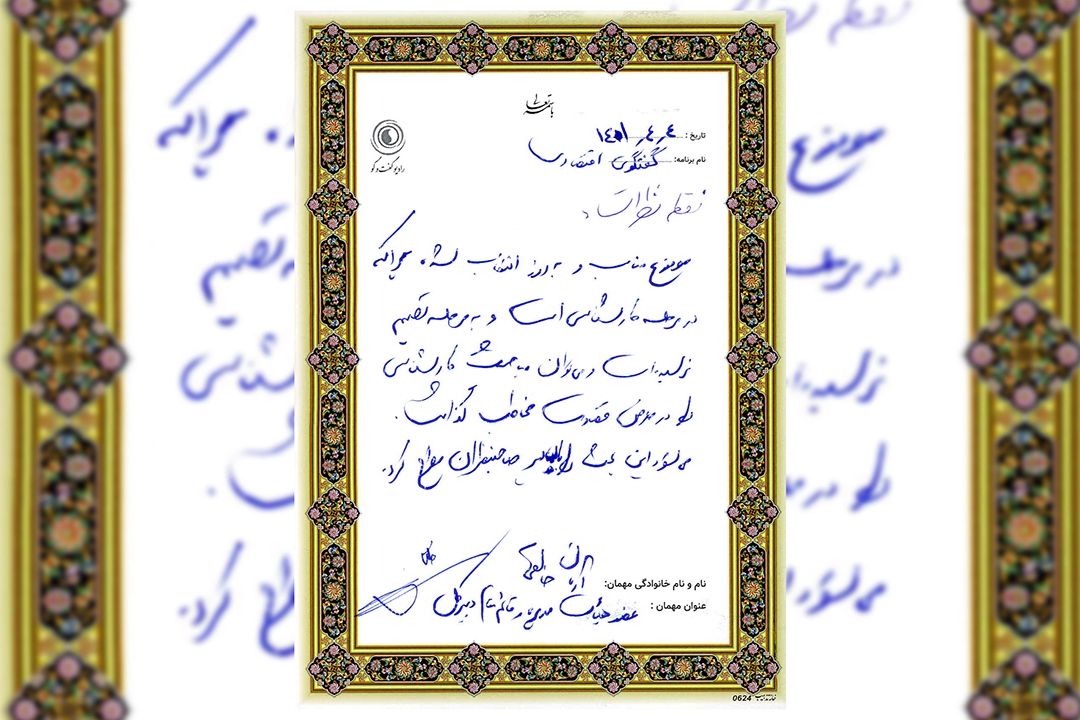 باسمه تعالی
رادیو گفت و گو
تاریخ : ۱۴۰۱٫۴٫۴
نام برنامه: گفتگوی اقتصادی
نقطه نظرات
موضوع مناسب و به روز انتخاب شده. چرا که
در مرحله کارشناسی است و به مرحله تصمیم
نرسیده است و می‌توان مبحث کارشناسی
را در معرض قضاوت مخاطب گذاشت.
می‌شود این بحث را با سایر صاحبنظران مطرح کرد.
نام و نام خانوادگی مهمان: آرمان خالقی
عنوان مهمان : عضو هیأت مدیره و قائم مقام دبیرکل
0624